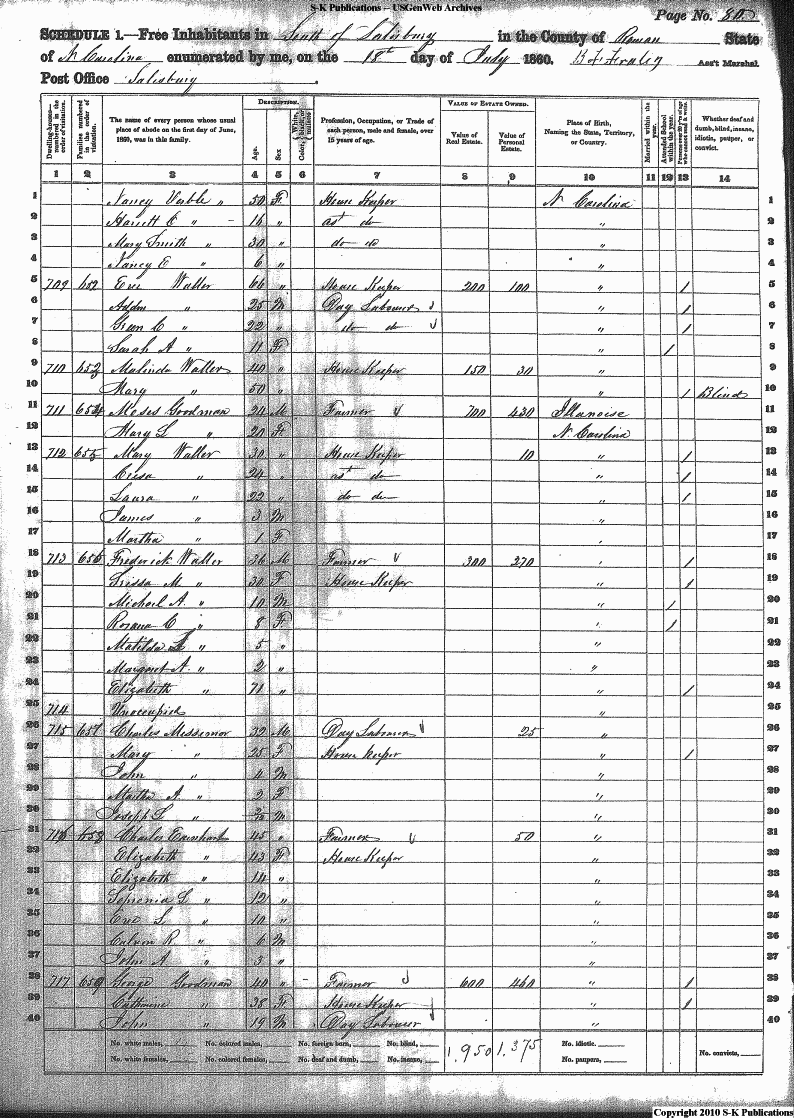 S-K Publications -- USGenWeb Archives
Page No. 80
SCHEDULE 1.—Free Inhabitants in South of Salisbury in the County of Rowan State
of N Carolina enumerated by me, on the 18th day of July 1860. B F Fraley Ass't Marshal.
Post Office Salisbury.
DESCRIPTION. VALUE OF ESTATE OWNED.
Dwelling-house—numbered in the order of visitation. Families numbered in the order of visitation. The name of every person whose usual place of abode on the first day of June, 1860, was in this family. Age. Sex Color, White, black, or mulatto Profession, Occupation, or Trade of each person, male and female, over 15 years of age. Value of Real Estate. Value of Personal Estate. Place of Birth, Naming the State, Territory, or Country. Married within the year. Attended School within the year. Persons over 20 y'rs of age who cannot read & write. Whether deaf and dumb, blind, insane, idiotic, pauper, or convict.
1 2 3 4 5 6 7 8 9 10 11 12 13 14
1 Nancy Verble " 50 F House Keeper N Carolina 1
2 Harriett C " 16 " ast do " 2
3 Mary Smith " 30 " do do " 3
4 Nancy E " 6 " " 4
5 709 652 Eve Waller 66 " House Keeper 200 100 " / 5
6 " 25 M Day Labourer " / 6
7 Green C " 22 " do do " / 7
8 Sarah A " 11 F " / 8
9 710 653 Malinda Waller 40 " House Keeper 150 30 " 9
10 Mary " 50 " " / Blind 10
11 711 654 Moses Goodman 24 M Farmer 700 430 Illanoise 11
12 Mary L " 20 F N. Carolina 12
13 712 655 Mary Waller 30 " House Keeper 10 " / 13
14 " 24 " ast do " / 14
15 Laura " 22 " do do " / 15
16 James " 3 M " 16
17 Martha " 1 F " 17
18 713 656 Frederick Waller 36 M Farmer 300 270 " / 18
19 M " 30 F House Keeper " / 19
20 Michael A. " 10 M " / 20
21 Rosana C " 8 F " / 21
22 Matilda " 5 " " 22
23 Margaret A. " 2 " " 23
24 Elizabeth " 71 " " / 24
25 714 Unoccupied " 25
26 715 657 Charles Messemor 32 M Day Labourer 25 " 26
27 Mary " 25 F House Keeper " / 27
28 John " 4 M " 28
29 Martha A. " 2 F " 29
30 Joseph L " M " 30
31 716 658 Charles Earnhart 45 " Farmer 50 " 31
32 Elizabeth " 43 F House Keeper " 32
33 Elizabeth " 14 " " 33
34 L " 12 " " 34
35 Eve L " 10 " " 35
36 Calvin R " 6 M " 36
37 John A " 3 " " 37
38 717 659 George Goodman 40 " Farmer 600 460 " / 38
39 Catharine " 38 F House Keeper " / 39
40 John " 19 M Day Labourer " 40
No. white males, No. colored males, No. foreign born, No. blind, 1,950 1,375 No. idiotic, No. convicts,
No. white females, No. colored females, No. deaf and dumb, No. insane, No. paupers,
Copyright 2010 S-K Publications